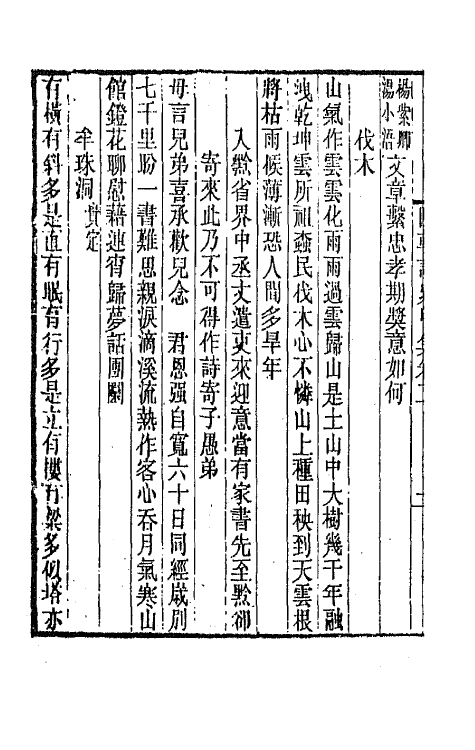 楊紫卿
湯小浯
文章繫忠孝期奬意如何
伐木
山氣作雲雲化雨雨過雲歸山是土山中大樹幾千年融
洩乾坤雲所祖蚩民伐木心不憐山上種田秧到天雲根
將枯雨候薄漸恐人間多旱年
入黔省界中丞文遣吏來迎意當有家書先至黔卻
寄來此乃不可得作詩寄子愚弟
毋言兄弟喜承歡兒念 君恩强自寬六十日同經嵗別
七千里盼一書難思親淚滴溪流熱作客心吞月氣寒山
館鐙花聊慰藉連宵歸夢話團圞
牟珠洞貴定
有橫有斜多是直有眠有行多是立有樓有梁多似塔亦